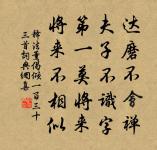 达磨不会禅
夫子不识字
第一莫将来
将来不相似
释法薰偈倾一百三十
三首词典网集